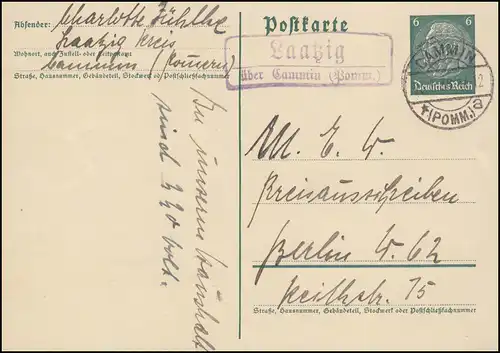 Absender: Charlotte
Laatzig Kreis
Wohnort, auch Zustell- oder Leitpostamt
Cammin (Pommern)
Straße, Hausnummer, Gebäudeteil, Stockwerk od. Postschließfachnummer
In unserm Haushalt
sind
Postkarte
6 6
Deutsches Reich
Laatzig
über Cammin (Pomm.)
CAMMIN
(POMM.) a
M. E. W.
Preisausschreiben
Berlin W. 62
Keithstr. 15
Straße, Hausnummer, Gebäudeteil, Stockwerk oder Postschließfachnummer